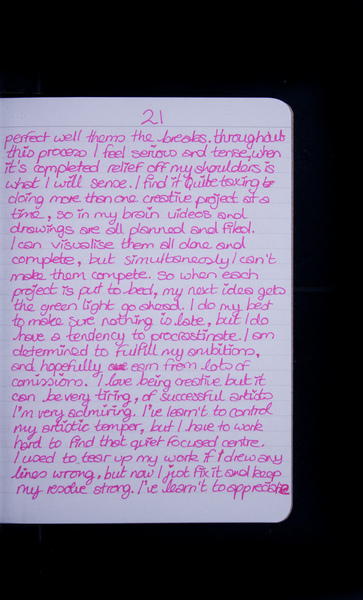 21
perfect well thems the breaks. throughout
this process I feel serious and tense, when
it's completed relief off my shoulders is
what I will sense. I find it quite taxing to
doing more than one creative project at a
time, so in my brain videos and
drawings are all planned and filed.
I can visualise them all done and
complete, but simultaneously I can't
make them compete. So when each
project is put to bed, my next idea gets
the green light go ahead. I do my best
to make sure nothing is late, but I do
have a tendency to procrastinate. I am
determined to fulfill my ambitions,
and hopefully earn from lots of
comissions. I love being creative but it
can be very tiring, of successful artists
I'm very admiring. I've learn't to control
my artistic temper, but I have to work
hard to find that quiet focused centre.
I used to tear up my work if I drew any
lines wrong, but now I just fix it and keep
my resolve strong. I've learn't to appreciate